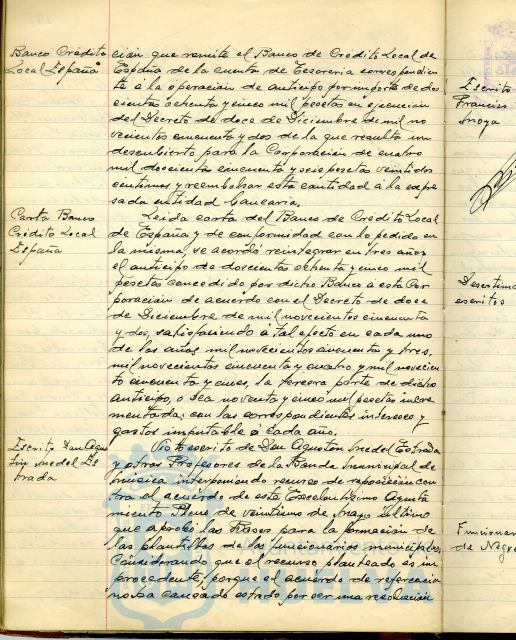 Banco Crédito
Local España
ción que remite el Banco de Crédito Local de
España de la cuenta de Tesorería correspondien
te a la operación de anticipo por importe de dos
cientas ochenta y cinco mil pesetas en ejecución
del Decreto de doce de Diciembre de mil no
vecientos cincuenta y dos de la que resulta un
descubierto para la Corporación de cuatro
mil doscientas cincuenta y seis pesetas veintidos
centimos y reembolsar esta cantidad a la expre
sada entidad bancaria.
Carta Banco
Crédito Local
España
Leida carta del Banco de Crédito Local
de España y de conformidad con lo pedido en
la misma, se acordó reintegrar en tres años
el anticipo de doscientas ochenta y cinco mil
pesetas concedido por dicho Banco a esta Cor
poración de acuerdo con el Decreto de doce
de Diciembre de mil novecientos cincuenta
y dos, satisfaciendo a tal efecto en cada uno
de los años mil novecientos cincuenta y tres,
mil novecientos cincuenta y cuatro y mil novecien
to cincuenta y cinco, la tercera parte de dicho
anticipo, o sea noventa y cinco mil pesetas incre
mentada con los correspondientes intereses y
gastos imputable a cada año.
Escrito Don Agus
tín
trada
Visto escrito de Don Agustín Estrada
y otros Profesores de la Banda municipal de
música interponiendo recurso de reposición con
tra el acuerdo de este Excelentísimo Ayunta
miento Pleno de veintiuno de Mayo último
que aprobó las Bases para la formación de
las plantillas de los funcionarios municipales.
Considerando que el recurso planteado es im
procedente, porque el acuerdo de referencia
no ha causado estado por ser una resolución
Escrito
Francisc
Desestima
escritos
Funcionar
de Negre